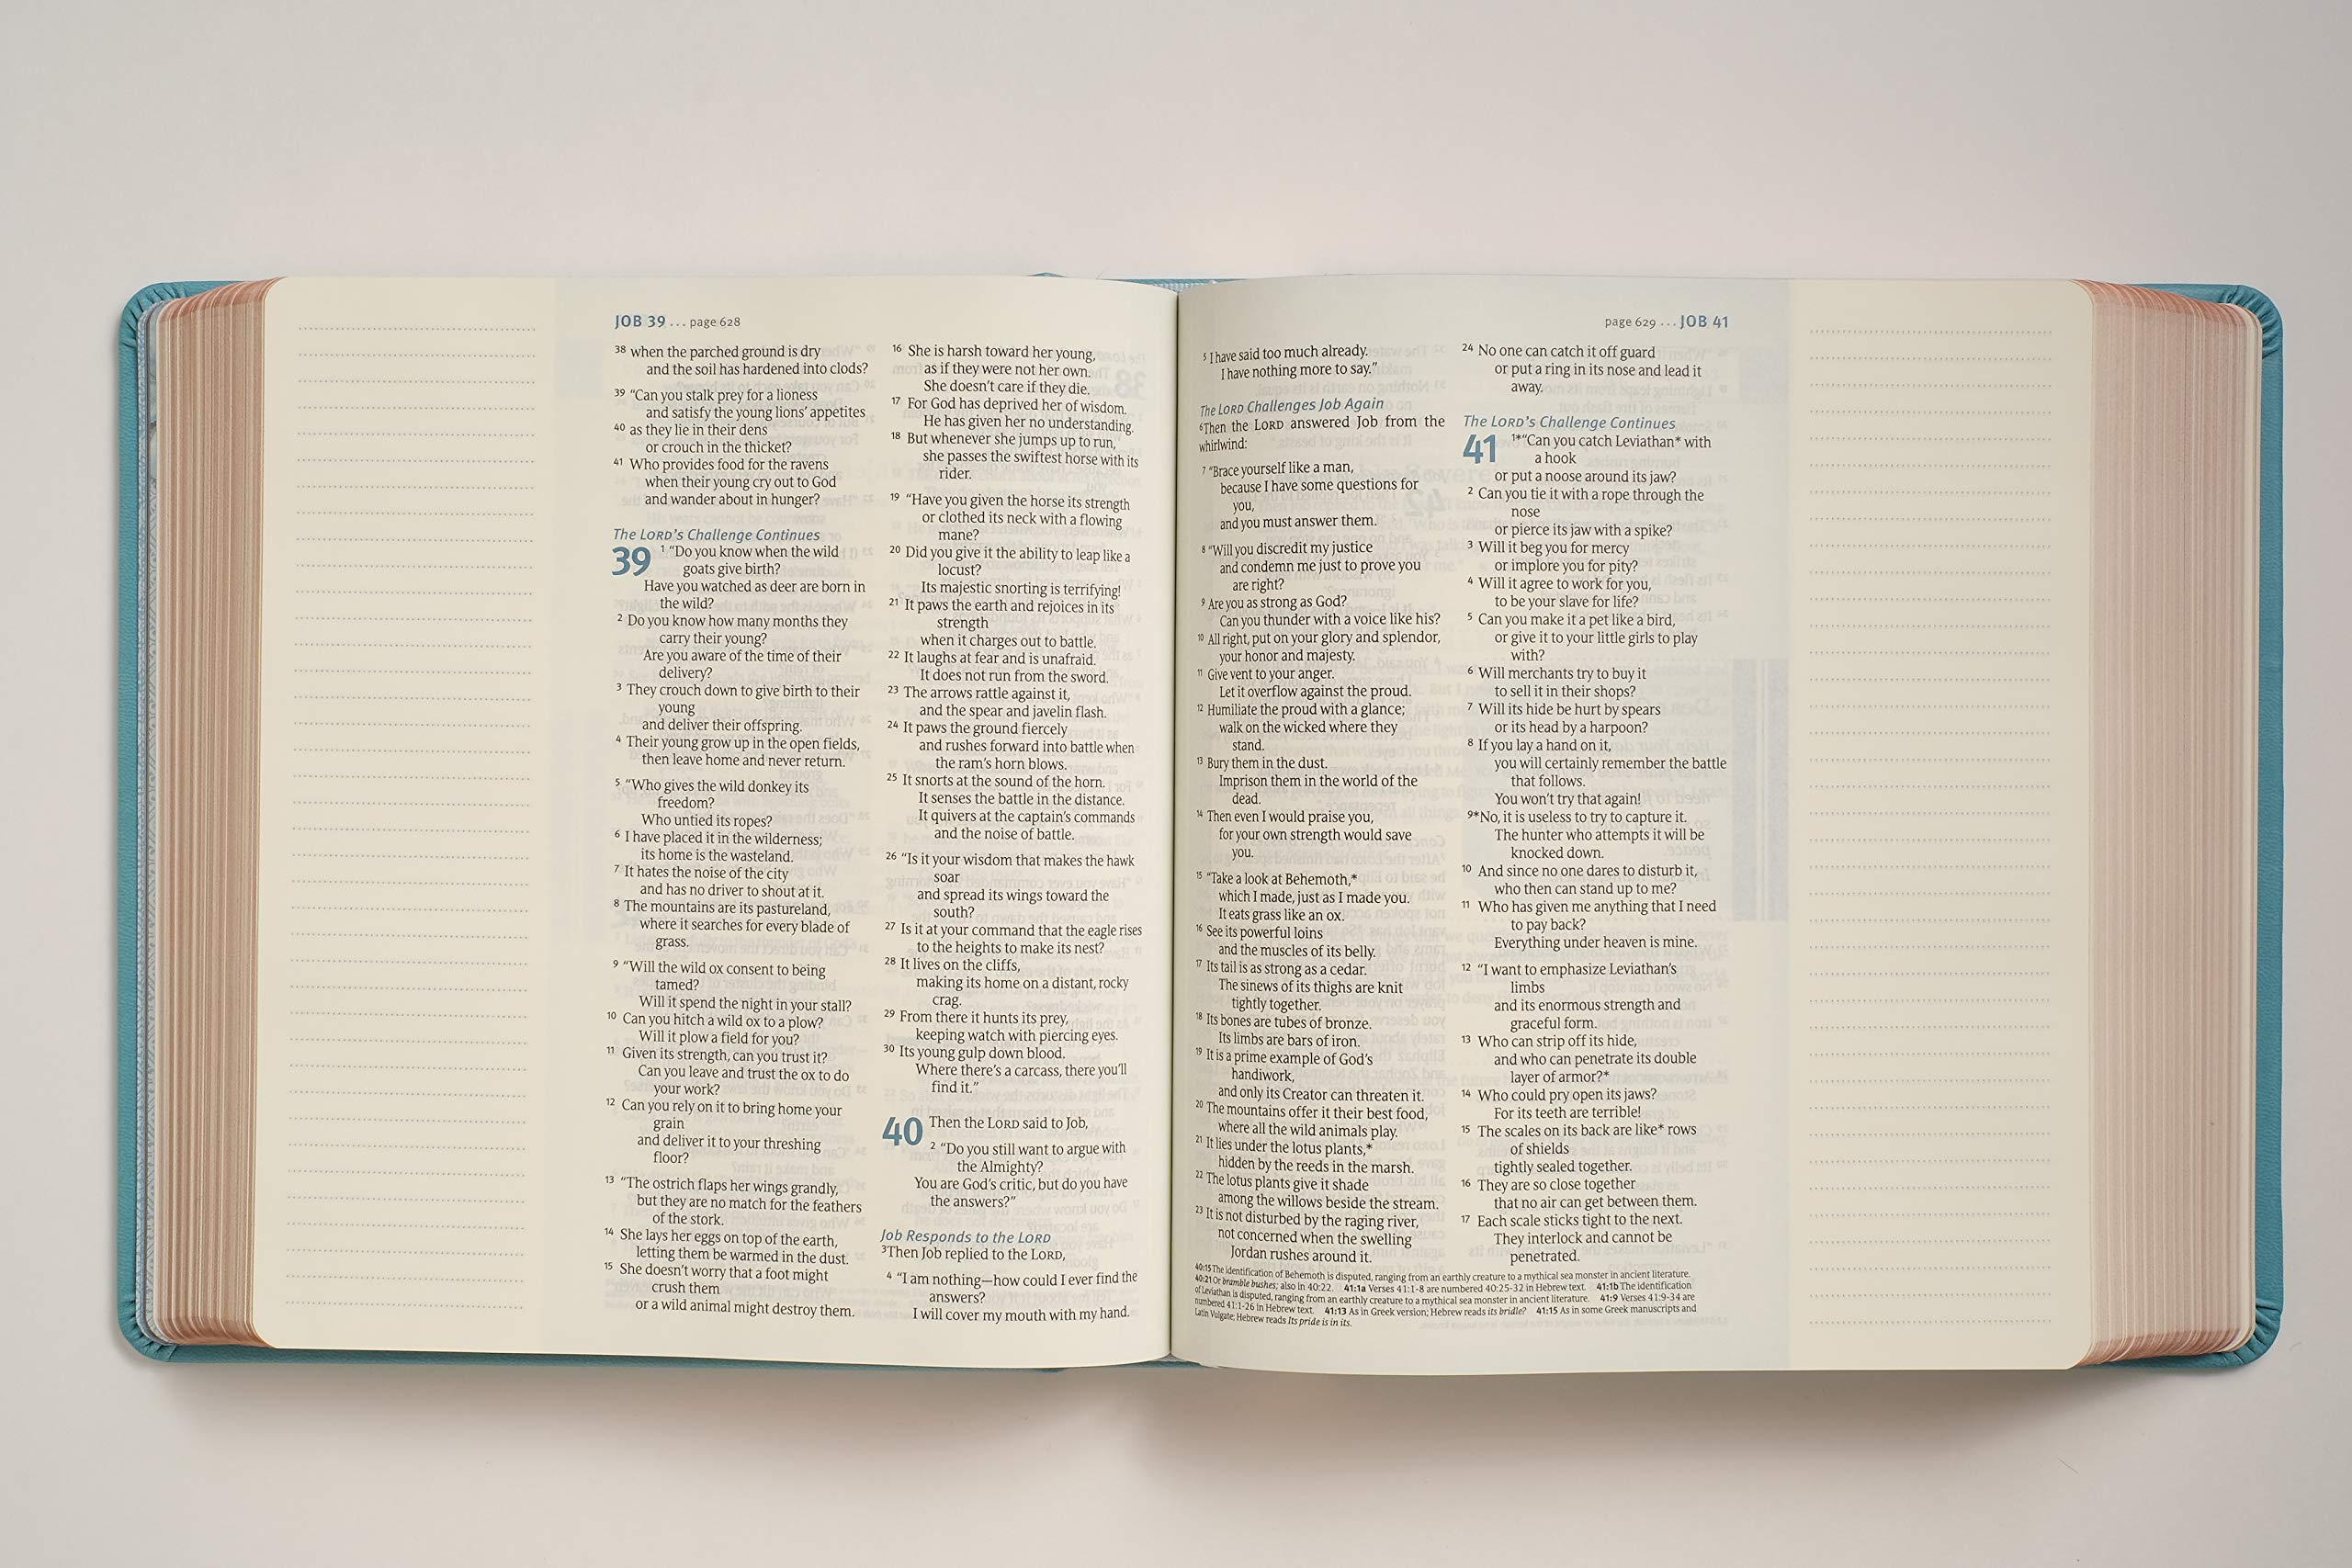 JOB 39 ... page 628
38 when the parched ground is dry
and the soil has hardened into clods?
39 “Can you stalk prey for a lioness
and satisfy the young lions’ appetites
40 as they lie in their dens
or crouch in the thicket?
41 Who provides food for the ravens
when their young cry out to God
and wander about in hunger?
The LORD’s Challenge Continues
39 1 “Do you know when the wild
goats give birth?
Have you watched as deer are born in
the wild?
2 Do you know how many months they
carry their young?
Are you aware of the time of their
delivery?
3 They crouch down to give birth to their
young
and deliver their offspring.
4 Their young grow up in the open fields,
then leave home and never return.
5 “Who gives the wild donkey its
freedom?
Who untied its ropes?
6 I have placed it in the wilderness;
its home is the wasteland.
7 It hates the noise of the city
and has no driver to shout at it.
8 The mountains are its pastureland,
where it searches for every blade of
grass.
9 “Will the wild ox consent to being
tamed?
Will it spend the night in your stall?
10 Can you hitch a wild ox to a plow?
Will it plow a field for you?
11 Given its strength, can you trust it?
Can you leave and trust the ox to do
your work?
12 Can you rely on it to bring home your
grain
and deliver it to your threshing
floor?
13 “The ostrich flaps her wings grandly,
but they are no match for the feathers
of the stork.
14 She lays her eggs on top of the earth,
letting them be warmed in the dust.
15 She doesn’t worry that a foot might
crush them
or a wild animal might destroy them.
16 She is harsh toward her young,
as if they were not her own.
She doesn’t care if they die.
17 For God has deprived her of wisdom.
He has given her no understanding.
18 But whenever she jumps up to run,
she passes the swiftest horse with its
rider.
19 “Have you given the horse its strength
or clothed its neck with a flowing
mane?
20 Did you give it the ability to leap like a
locust?
Its majestic snorting is terrifying!
21 It paws the earth and rejoices in its
strength
when it charges out to battle.
22 It laughs at fear and is unafraid.
It does not run from the sword.
23 The arrows rattle against it,
and the spear and javelin flash.
24 It paws the ground fiercely
and rushes forward into battle when
the ram’s horn blows.
25 It snorts at the sound of the horn.
It senses the battle in the distance.
It quivers at the captain’s commands
and the noise of battle.
26 “Is it your wisdom that makes the hawk
soar
and spread its wings toward the
south?
27 Is it at your command that the eagle rises
to the heights to make its nest?
28 It lives on the cliffs,
making its home on a distant, rocky
crag.
29 From there it hunts its prey,
keeping watch with piercing eyes.
30 Its young gulp down blood.
Where there’s a carcass, there you’ll
find it.”
40 Then the LORD said to Job,
2 “Do you still want to argue with
the Almighty?
You are God’s critic, but do you have
the answers?”
Job Responds to the LORD
3Then Job replied to the LORD,
4 “I am nothing—how could I ever find the
answers?
I will cover my mouth with my hand.
page 629 ... JOB 41
5 I have said too much already.
I have nothing more to say.”
The LORD Challenges Job Again
6Then the LORD answered Job from the
whirlwind:
7 “Brace yourself like a man,
because I have some questions for
you,
and you must answer them.
8 “Will you discredit my justice
and condemn me just to prove you
are right?
9 Are you as strong as God?
Can you thunder with a voice like his?
10 All right, put on your glory and splendor,
your honor and majesty.
11 Give vent to your anger.
Let it overflow against the proud.
12 Humiliate the proud with a glance;
walk on the wicked where they
stand.
13 Bury them in the dust.
Imprison them in the world of the
dead.
14 Then even I would praise you,
for your own strength would save
you.
15 “Take a look at Behemoth,*
which I made, just as I made you.
It eats grass like an ox.
16 See its powerful loins
and the muscles of its belly.
17 Its tail is as strong as a cedar.
The sinews of its thighs are knit
tightly together.
18 Its bones are tubes of bronze.
Its limbs are bars of iron.
19 It is a prime example of God’s
handiwork,
and only its Creator can threaten it.
20 The mountains offer it their best food,
where all the wild animals play.
21 It lies under the lotus plants,*
hidden by the reeds in the marsh.
22 The lotus plants give it shade
among the willows beside the stream.
23 It is not disturbed by the raging river,
not concerned when the swelling
Jordan rushes around it.
24 No one can catch it off guard
or put a ring in its nose and lead it
away.
The LORD’s Challenge Continues
41 1*“Can you catch Leviathan* with
a hook
or put a noose around its jaw?
2 Can you tie it with a rope through the
nose
or pierce its jaw with a spike?
3 Will it beg you for mercy
or implore you for pity?
4 Will it agree to work for you,
to be your slave for life?
5 Can you make it a pet like a bird,
or give it to your little girls to play
with?
6 Will merchants try to buy it
to sell it in their shops?
7 Will its hide be hurt by spears
or its head by a harpoon?
8 If you lay a hand on it,
you will certainly remember the battle
that follows.
You won’t try that again!
9*No, it is useless to try to capture it.
The hunter who attempts it will be
knocked down.
10 And since no one dares to disturb it,
who then can stand up to me?
11 Who has given me anything that I need
to pay back?
Everything under heaven is mine.
12 “I want to emphasize Leviathan’s
limbs
and its enormous strength and
graceful form.
13 Who can strip off its hide,
and who can penetrate its double
layer of armor?*
14 Who could pry open its jaws?
For its teeth are terrible!
15 The scales on its back are like* rows
of shields
tightly sealed together.
16 They are so close together
that no air can get between them.
17 Each scale sticks tight to the next.
They interlock and cannot be
penetrated.
40:15 The identification of Behemoth is disputed, ranging from an earthly creature to a mythical sea monster in ancient literature.
40:21 Or bramble bushes; also in 40:22. 41:1a Verses 41:1-8 are numbered 40:25-32 in Hebrew text. 41:1b The identification
of Leviathan is disputed, ranging from an earthly creature to a mythical sea monster in ancient literature. 41:9 Verses 41:9-34 are
numbered 41:1-26 in Hebrew text. 41:13 As in Greek version; Hebrew reads its bridle? 41:15 As in some Greek manuscripts and
Latin Vulgate; Hebrew reads Its pride is in its.